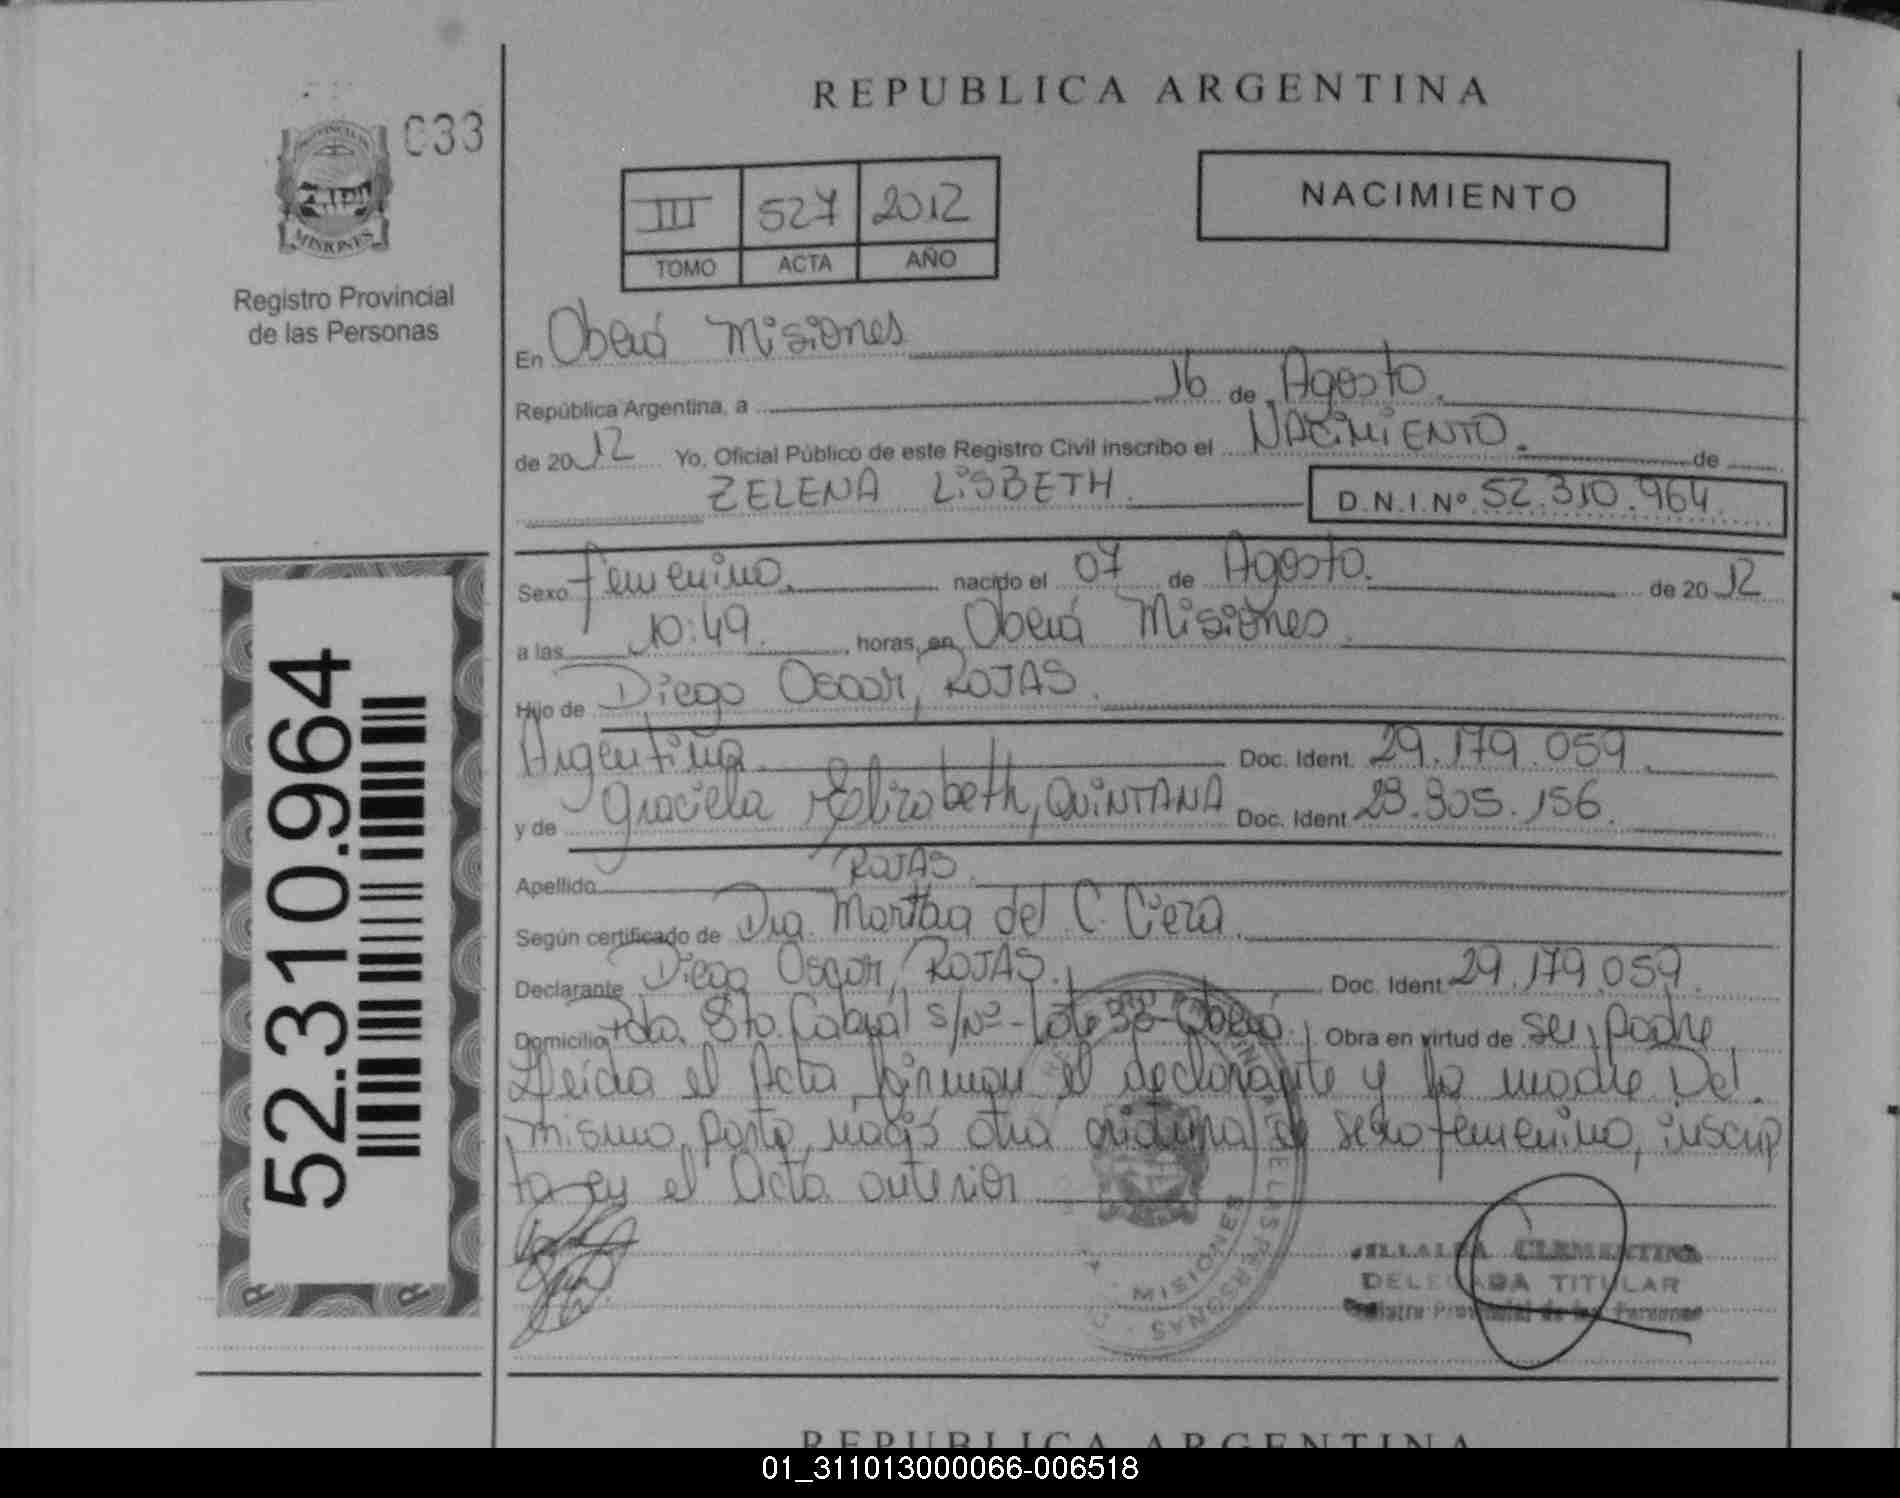 REPUBLICA ARGENTINA
033
NACIMIENTO
III 527 2012
TOMO ACTA AÑO
MISIONES
Registro Provincial
de las Personas
En Oberá Misiones
República Argentina, a 16 de Agosto.
de 2012 Yo, Oficial Público de este Registro Civil inscribo el NACIMIENTO. de
ZELENA LISBETH. D.N.I.Nº 52.310.964
Sexo femenino. nacido el 07 de Agosto. de 2012
a las 10:49. horas, en Oberá Misiones.
Hijo de Diego Oscar, ROJAS.
Argentina. Doc. Ident. 29.179.059.
y de Graciela Elizabeth, QUINTANA Doc. Ident. 28.305.156.
Apellido ROJAS.
Según certificado de Dra. Martha del C.
Declarante Diego Oscar, ROJAS. Doc. Ident. 29.179.059.
Domicilio Sto. Cabral s/Nº - Lote Oberá. Obra en virtud de ser padre
Leída el Acta firman el declarante y la madre Del
mismo parto nació otra criatura de sexo femenino, inscrip
ta en el Acta anterior
52.310.964
MISIONES
VILLALBA CLEMENTINA
DELEGADA TITULAR
Registro Provincial de las Personas
REPUBLICA ARGENTINA
01_311013000066-006518